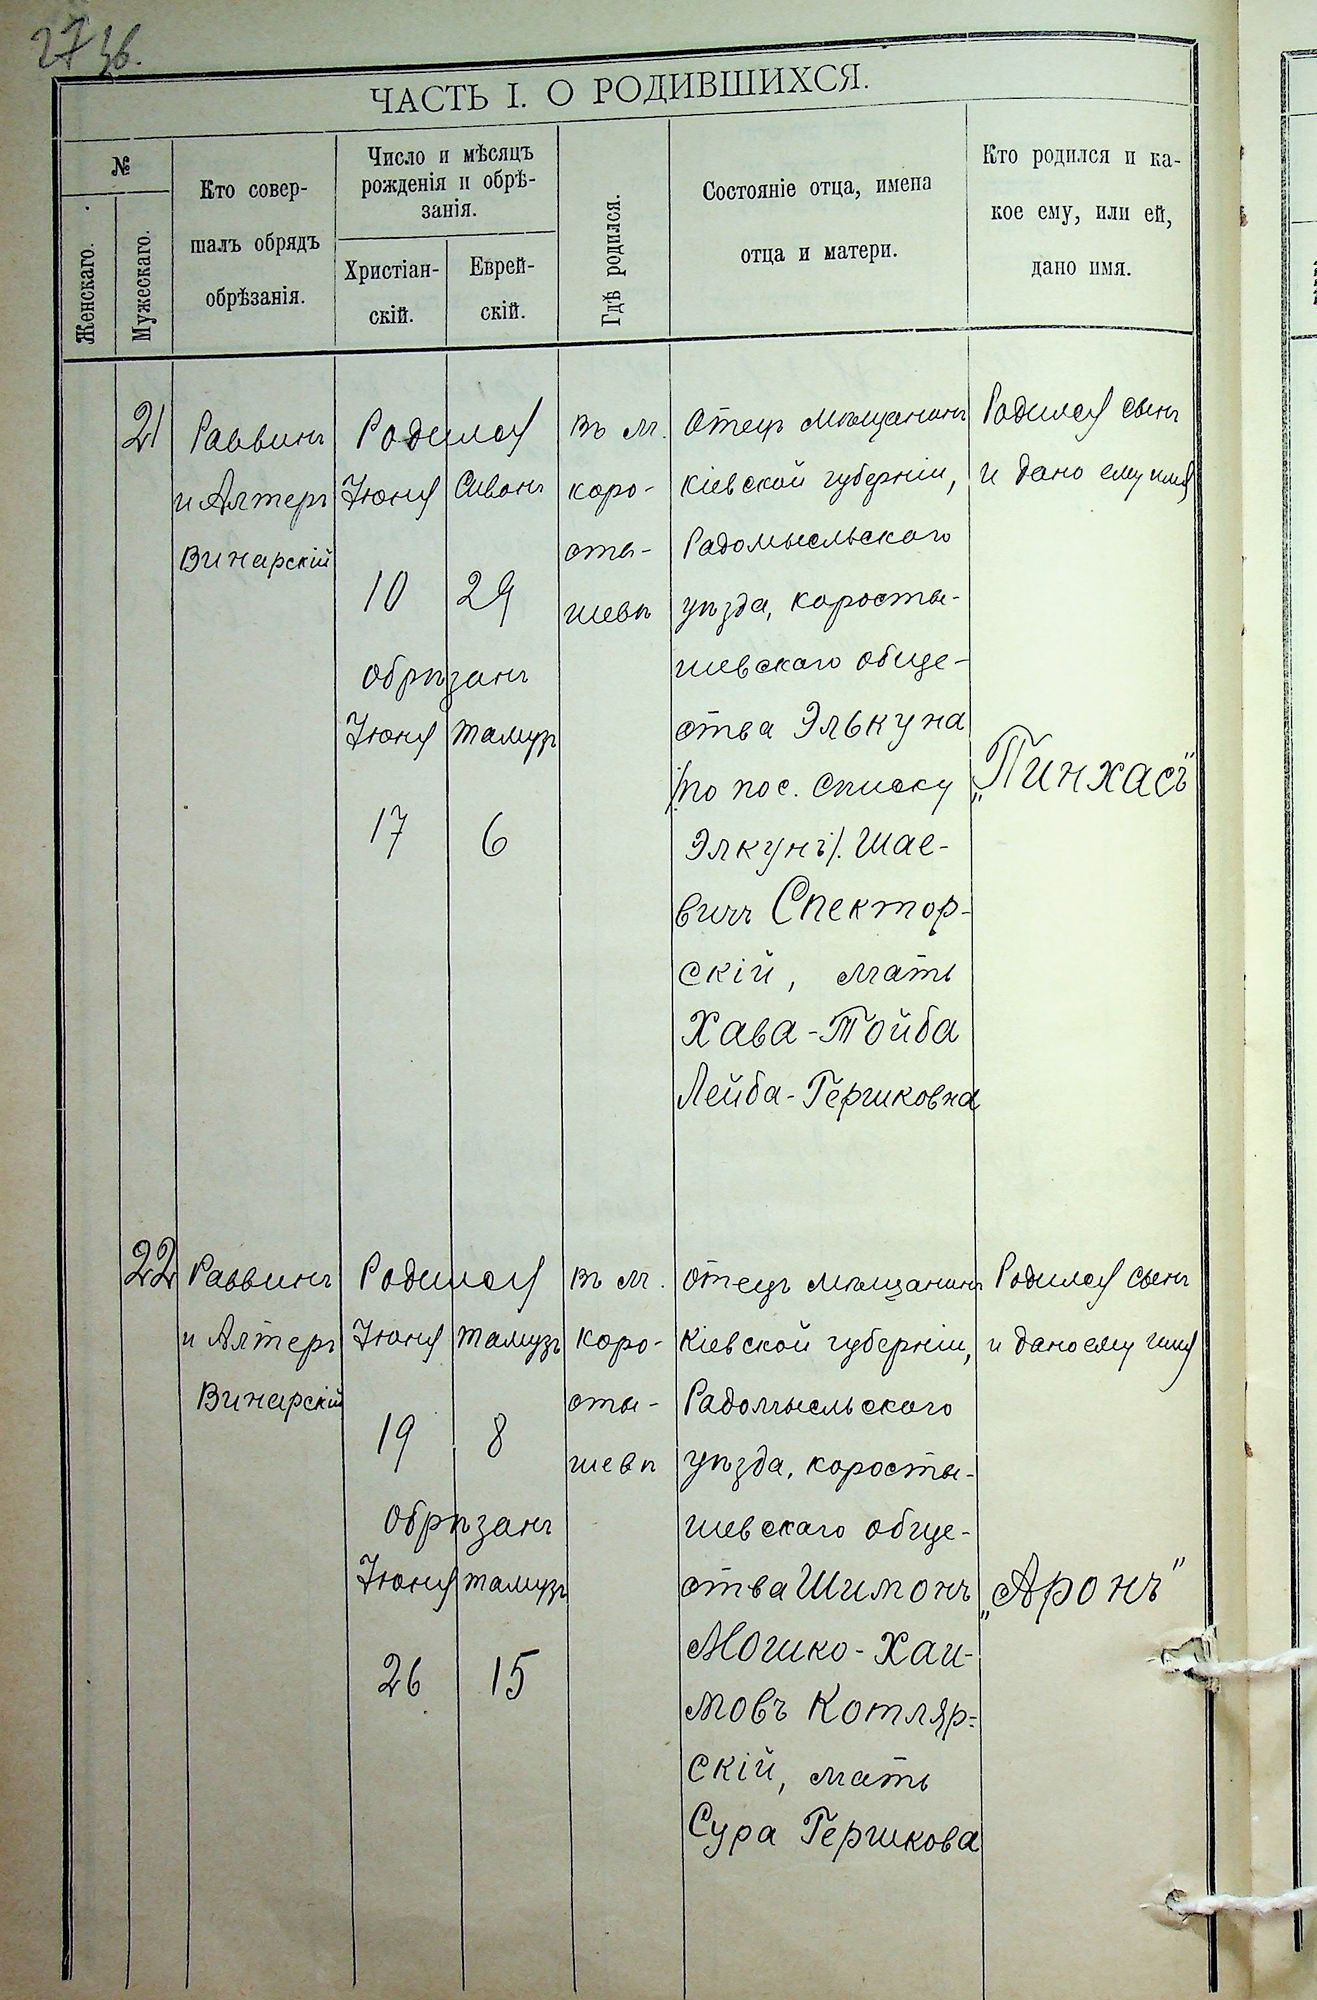 ЧАСТЬ I. О РОДИВШИХСЯ.
№
Женскаго.
Мужескаго.
Кто совер-
шалъ обрядъ
обрѣзанія.
Число и мѣсяцъ
рожденія и обрѣ-
занія.
Христіан-
скій.
Еврей-
скій.
Гдѣ родился.
Состояніе отца, имена
отца и матери.
Кто родился и ка-
кое ему, или ей,
дано имя.
21
Раввинъ
и Алтеръ
Винарскій
Родился
Іюня Сивонъ
10 29
обрѣзанъ
Іюня Тамузъ
17 6
Въ м.
Коро-
сты-
шевѣ
Отецъ мѣщанинъ
Кіевской губерніи,
Радомысльскаго
уѣзда, коросты-
шевскаго обще-
ства Элькуна
/по пос. списку
Элкунъ/. Шае-
вичъ Спектор-
скій, мать
Хава-Тойба
Лейба-Гершковна
Родился сынъ
и дано ему имя
„Пинхасъ"
22
Раввинъ
и Алтеръ
Винарскій
Родился
Іюня Тамузъ
19 8
Обрѣзанъ
Іюня Тамузъ
26 15
Въ м.
Коро-
сты-
шевѣ
Отецъ мѣщанинъ
Кіевской губерніи,
Радомысльскаго
уѣзда, коросты-
шевскаго обще-
ства Шимонъ
Мошко-Хаи-
мовъ Котляр-
скій, мать
Сура Гершкова
Родился сынъ
и дано ему имя
„Аронъ"